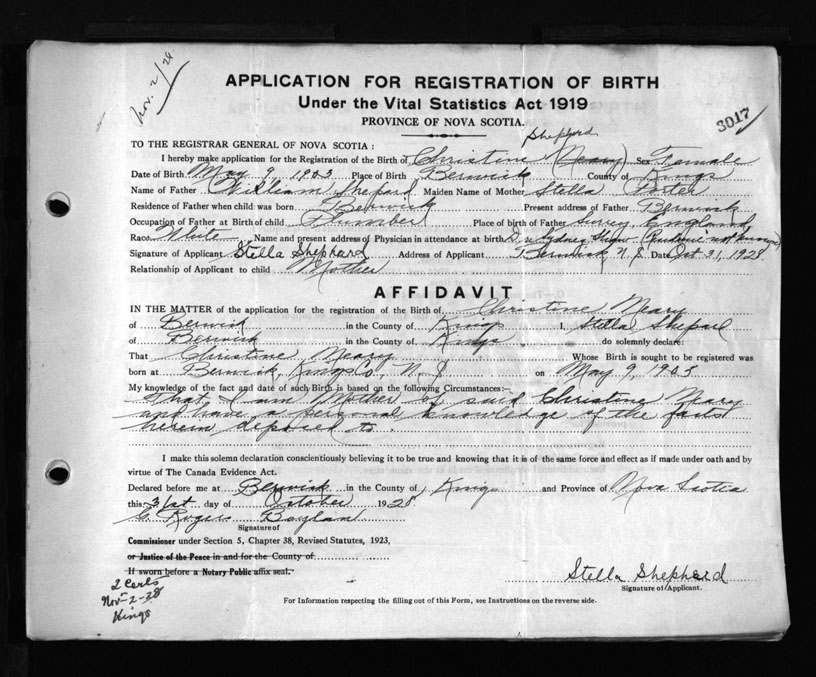 Nov. 2/28
APPLICATION FOR REGISTRATION OF BIRTH
Under the Vital Statistics Act 1919
PROVINCE OF NOVA SCOTIA.
3017
TO THE REGISTRAR GENERAL OF NOVA SCOTIA :
Shepherd
I hereby make application for the Registration of the Birth of Christine (Meary) Sex Female
Date of Birth May 9 1903 Place of Birth Berwick County of Kings
Name of Father William Shepard Maiden Name of Mother Stella Porter
Residence of Father when child was born Berwick Present address of Father Berwick
Occupation of Father at Birth of child Plumber Place of Birth of Father Surrey, England
Race White Name and present address of Physician in attendance at birth Dr. Sydney
Signature of Applicant Stella Shepherd Address of Applicant Berwick N.S. Date Oct 31, 1928
Relationship of Applicant to child Mother
AFFIDAVIT
IN THE MATTER of the application for the registration of the Birth of Christine Meary
of Berwick in the County of Kings I, Stella Shepard
of Berwick in the County of Kings do solemnly declare:
That Christine Meary Whose Birth is sought to be registered was
born at Berwick, Kings Co., N.S. on May 9, 1903
My knowledge of the fact and date of such Birth is based on the following Circumstances:-
That I am Mother of said Christine Meary
and have a personal knowledge of the facts
herein deposed to.
I make this solemn declaration conscientiously believing it to be true and knowing that it is of the same force and effect as if made under oath and by
virtue of The Canada Evidence Act.
Declared before me at Berwick in the County of Kings and Province of Nova Scotia
this 31st day of October 1928
Roger Baylan
Signature of
Commissioner under Section 5, Chapter 38, Revised Statutes, 1923,
or Justice of the Peace in and for the County of
If sworn before a Notary Public affix seal.
Stella Shepherd
Signature of Applicant.
2 Certs
Nov-2-28
Kings
For Information respecting the filling out of this Form, see Instructions on the reverse side.